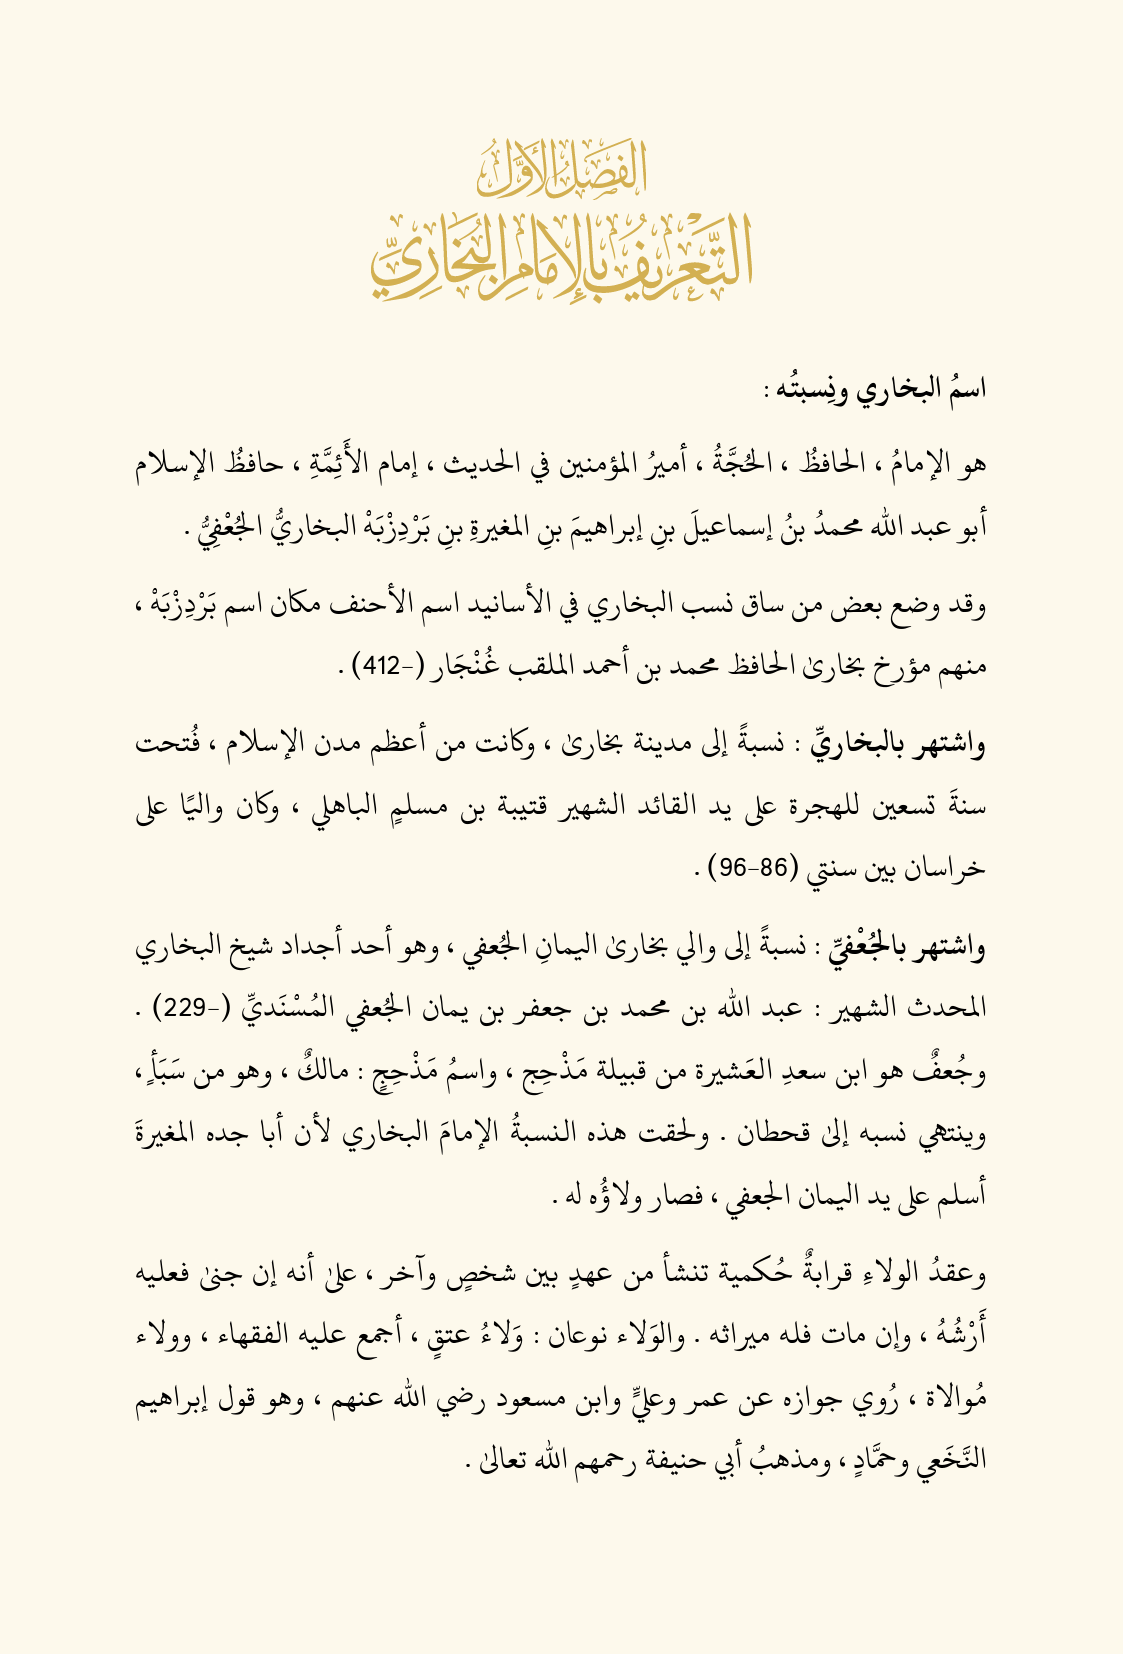 الفَصْلُ الأَوَّلُ
التَّعْرِيفُ بِالإِمَامِ البُخَارِيِّ
اسمُ البخاري ونِسبتُه :
هو الإمامُ ، الحافظُ ، الحُجَّةُ ، أميرُ المؤمنين في الحديث ، إمام الأَئِمَّةِ ، حافظُ الإسلام
أبو عبد الله محمدُ بنُ إسماعيلَ بنِ إبراهيمَ بنِ المغيرةِ بنِ بَرْدِزْبَهْ البخاريُّ الجُعْفِيُّ .
وقد وضع بعض من ساق نسب البخاري في الأسانيد اسم الأحنف مكان اسم بَرْدِزْبَهْ ،
منهم مؤرخ بخارىٰ الحافظ محمد بن أحمد الملقب غُنْجَار (-412) .
واشتهر بالبخاريِّ : نسبةً إلى مدينة بخارىٰ ، وكانت من أعظم مدن الإسلام ، فُتحت
سنةَ تسعين للهجرة على يد القائد الشهير قتيبة بن مسلمٍ الباهلي ، وكان واليًا على
خراسان بين سنتي (86-96) .
واشتهر بالجُعْفيِّ : نسبةً إلى والي بخارىٰ اليمانِ الجُعفي ، وهو أحد أجداد شيخ البخاري
المحدث الشهير : عبد الله بن محمد بن جعفر بن يمان الجُعفي المُسْنَديِّ (-229) .
وجُعفٌ هو ابن سعدِ العَشيرة من قبيلة مَذْحِج ، واسمُ مَذْحِجٍ : مالكٌ ، وهو من سَبَأٍ ،
وينتهي نسبه إلىٰ قحطان . ولحقت هذه النسبةُ الإمامَ البخاري لأن أبا جده المغيرةَ
أسلم على يد اليمان الجعفي ، فصار ولاؤُه له .
وعقدُ الولاءِ قرابةٌ حُكمية تنشأ من عهدٍ بين شخصٍ وآخر ، علىٰ أنه إن جنىٰ فعليه
أَرْشُهُ ، وإن مات فله ميراثه . والوَلاء نوعان : وَلاءُ عتقٍ ، أجمع عليه الفقهاء ، وولاء
مُوالاة ، رُوي جوازه عن عمر وعليٍّ وابن مسعود رضي الله عنهم ، وهو قول إبراهيم
النَّخَعي وحمَّادٍ ، ومذهبُ أبي حنيفة رحمهم الله تعالىٰ .